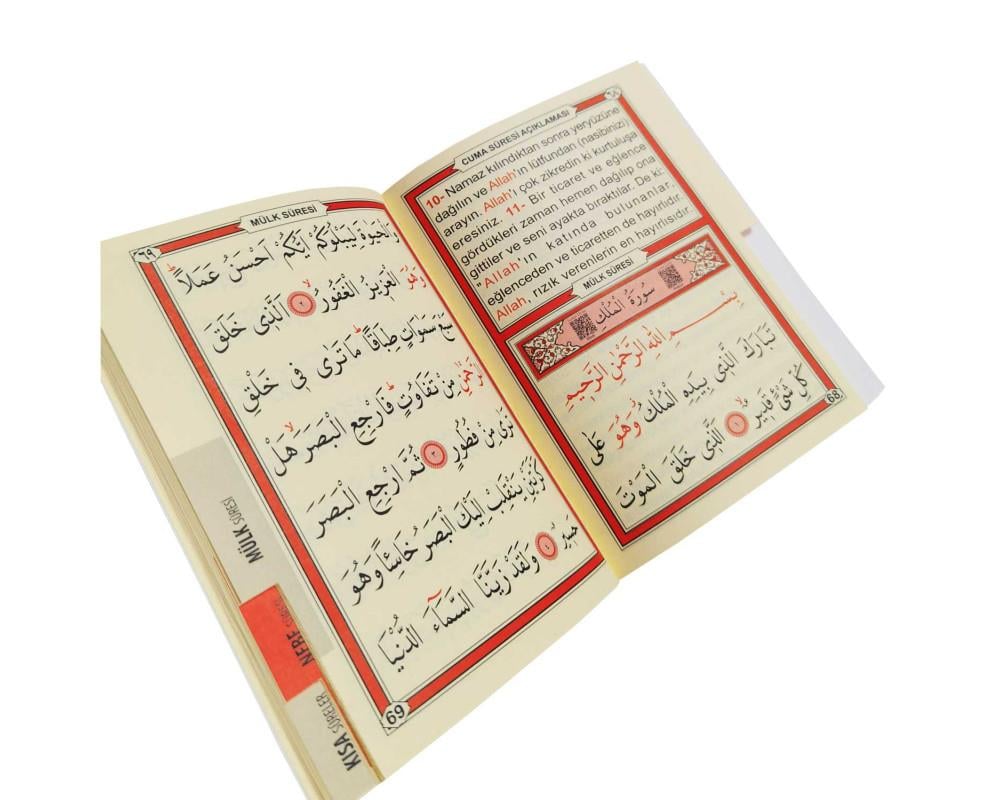 CUMA SÛRESİ AÇIKLAMASI
٦٨
10- Namaz kılındıktan sonra yeryüzüne
dağılın ve Allah'ın lütfundan (nasibinizi)
arayın. Allah'ı çok zikredin ki kurtuluşa
eresiniz. 11- Bir ticaret ve eğlence
gördükleri zaman hemen dağılıp ona
gittiler ve seni ayakta bıraktılar. De ki:
"Allah'ın katında bulunanlar,
eğlenceden ve ticaretten de hayırlıdır.
Allah, rızık verenlerin en hayırlısıdır.
MÜLK SÛRESİ
سُورَةُ الْمُلْكِ
بِسْمِ اللّٰهِ الرَّحْمٰنِ الرَّحِيمِ
تَبَارَكَ الَّذِى بِيَدِهِ الْمُلْكُ وَهُوَ عَلٰى
كُلِّ شَىْءٍ قَدِيرٌ ۙ ١ اَلَّذِى خَلَقَ الْمَوْتَ
68
MÜLK SÛRESİ
٦٩
وَالْحَيٰوةَ لِيَبْلُوَكُمْ اَيُّكُمْ اَحْسَنُ عَمَلًاۜ
وَهُوَ الْعَزِيزُ الْغَفُورُۙ ٢ اَلَّذِى خَلَقَ
سَبْعَ سَمٰوَاتٍ طِبَاقًاۜ مَا تَرٰى فِى خَلْقِ
الرَّحْمٰنِ مِنْ تَفَاوُتٍۜ فَارْجِعِ الْبَصَرَۙ هَلْ
تَرٰى مِنْ فُطُورٍ ٣ ثُمَّ ارْجِعِ الْبَصَرَ
كَرَّتَيْنِ يَنْقَلِبْ اِلَيْكَ الْبَصَرُ خَاسِئًا وَهُوَ
حَسِيرٌ ٤ وَلَقَدْ زَيَّنَّا السَّمَٓاءَ الدُّنْيَا
69
MÜLK SÛRESİ
KISA SÛRELER